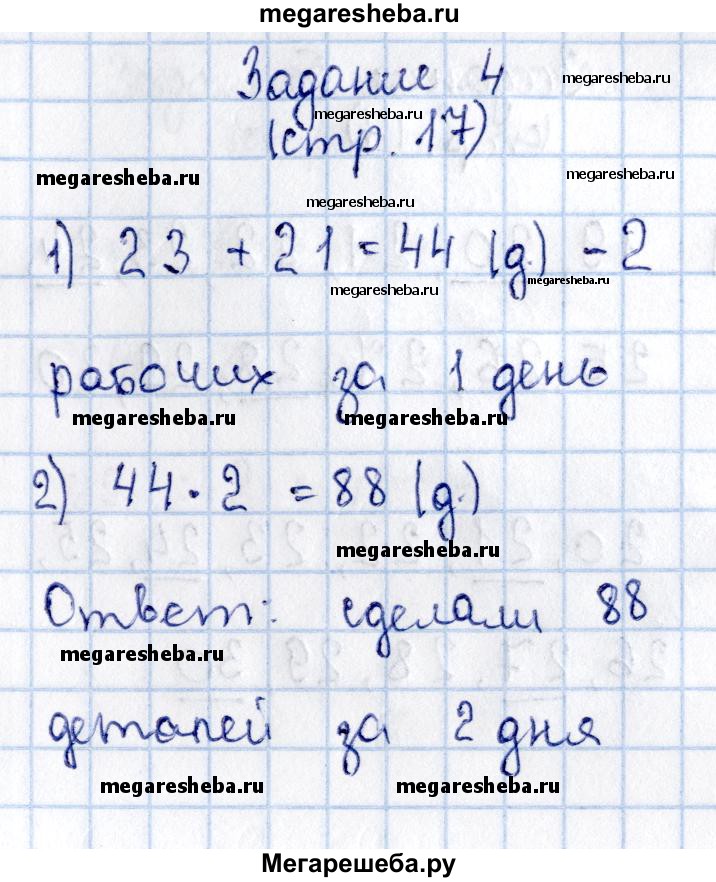 megaresheba.ru
Задание 4
megaresheba.ru
megaresheba.ru
(стр. 17)
megaresheba.ru
megaresheba.ru
megaresheba.ru
1) 23 + 21 = 44 (д.) - 2
megaresheba.ru
megaresheba.ru
рабочих за 1 день
megaresheba.ru
megaresheba.ru
2) 44 · 2 = 88 (д.)
megaresheba.ru
Ответ: сделали 88
megaresheba.ru
деталей за 2 дня
megaresheba.ru
megaresheba.ru
Мегарешеба.ру